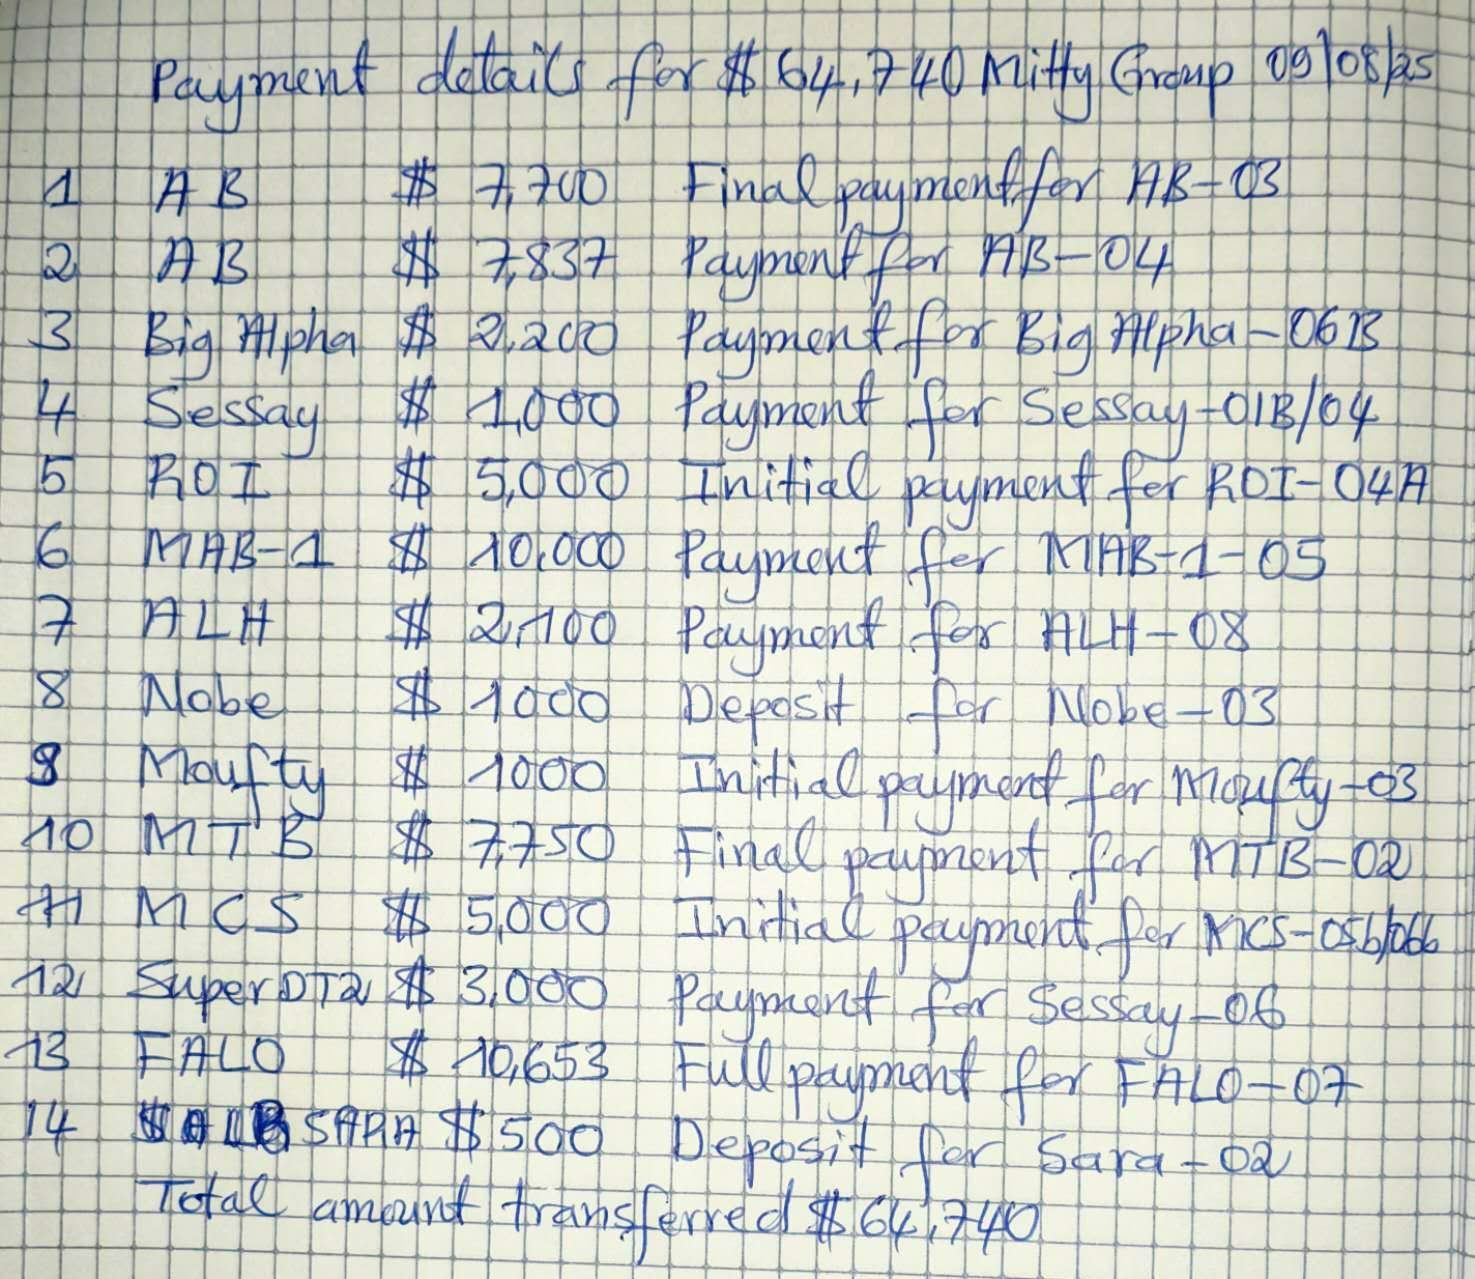 Payment details for $64,740 Mitty Group 09/08/25
1 AB $ 7,700 Final payment for AB-03
2 AB $ 7,837 Payment for AB-04
3 Big Alpha $ 2,200 Payment for Big Alpha-06B
4 Sessay $ 1,000 Payment for Sessay-01B/04
5 ROI $ 5,000 Initial payment for ROI-04A
6 MAB-1 $ 10,000 Payment for MAB-1-05
7 ALH $ 2,100 Payment for ALH-08
8 Nobe $ 1000 Deposit for Nobe-03
9 Moufty $ 1000 Initial payment for Moufty-03
10 MTB $ 7,750 Final payment for MTB-02
11 MCS $ 5,000 Initial payment for MCS-05b/06b
12 Super DT2 $ 3,000 Payment for Sessay-06
13 FALO $ 10,653 Full payment for FALO-07
14 SARA $ 500 Deposit for Sara-02
Total amount transferred $64,740